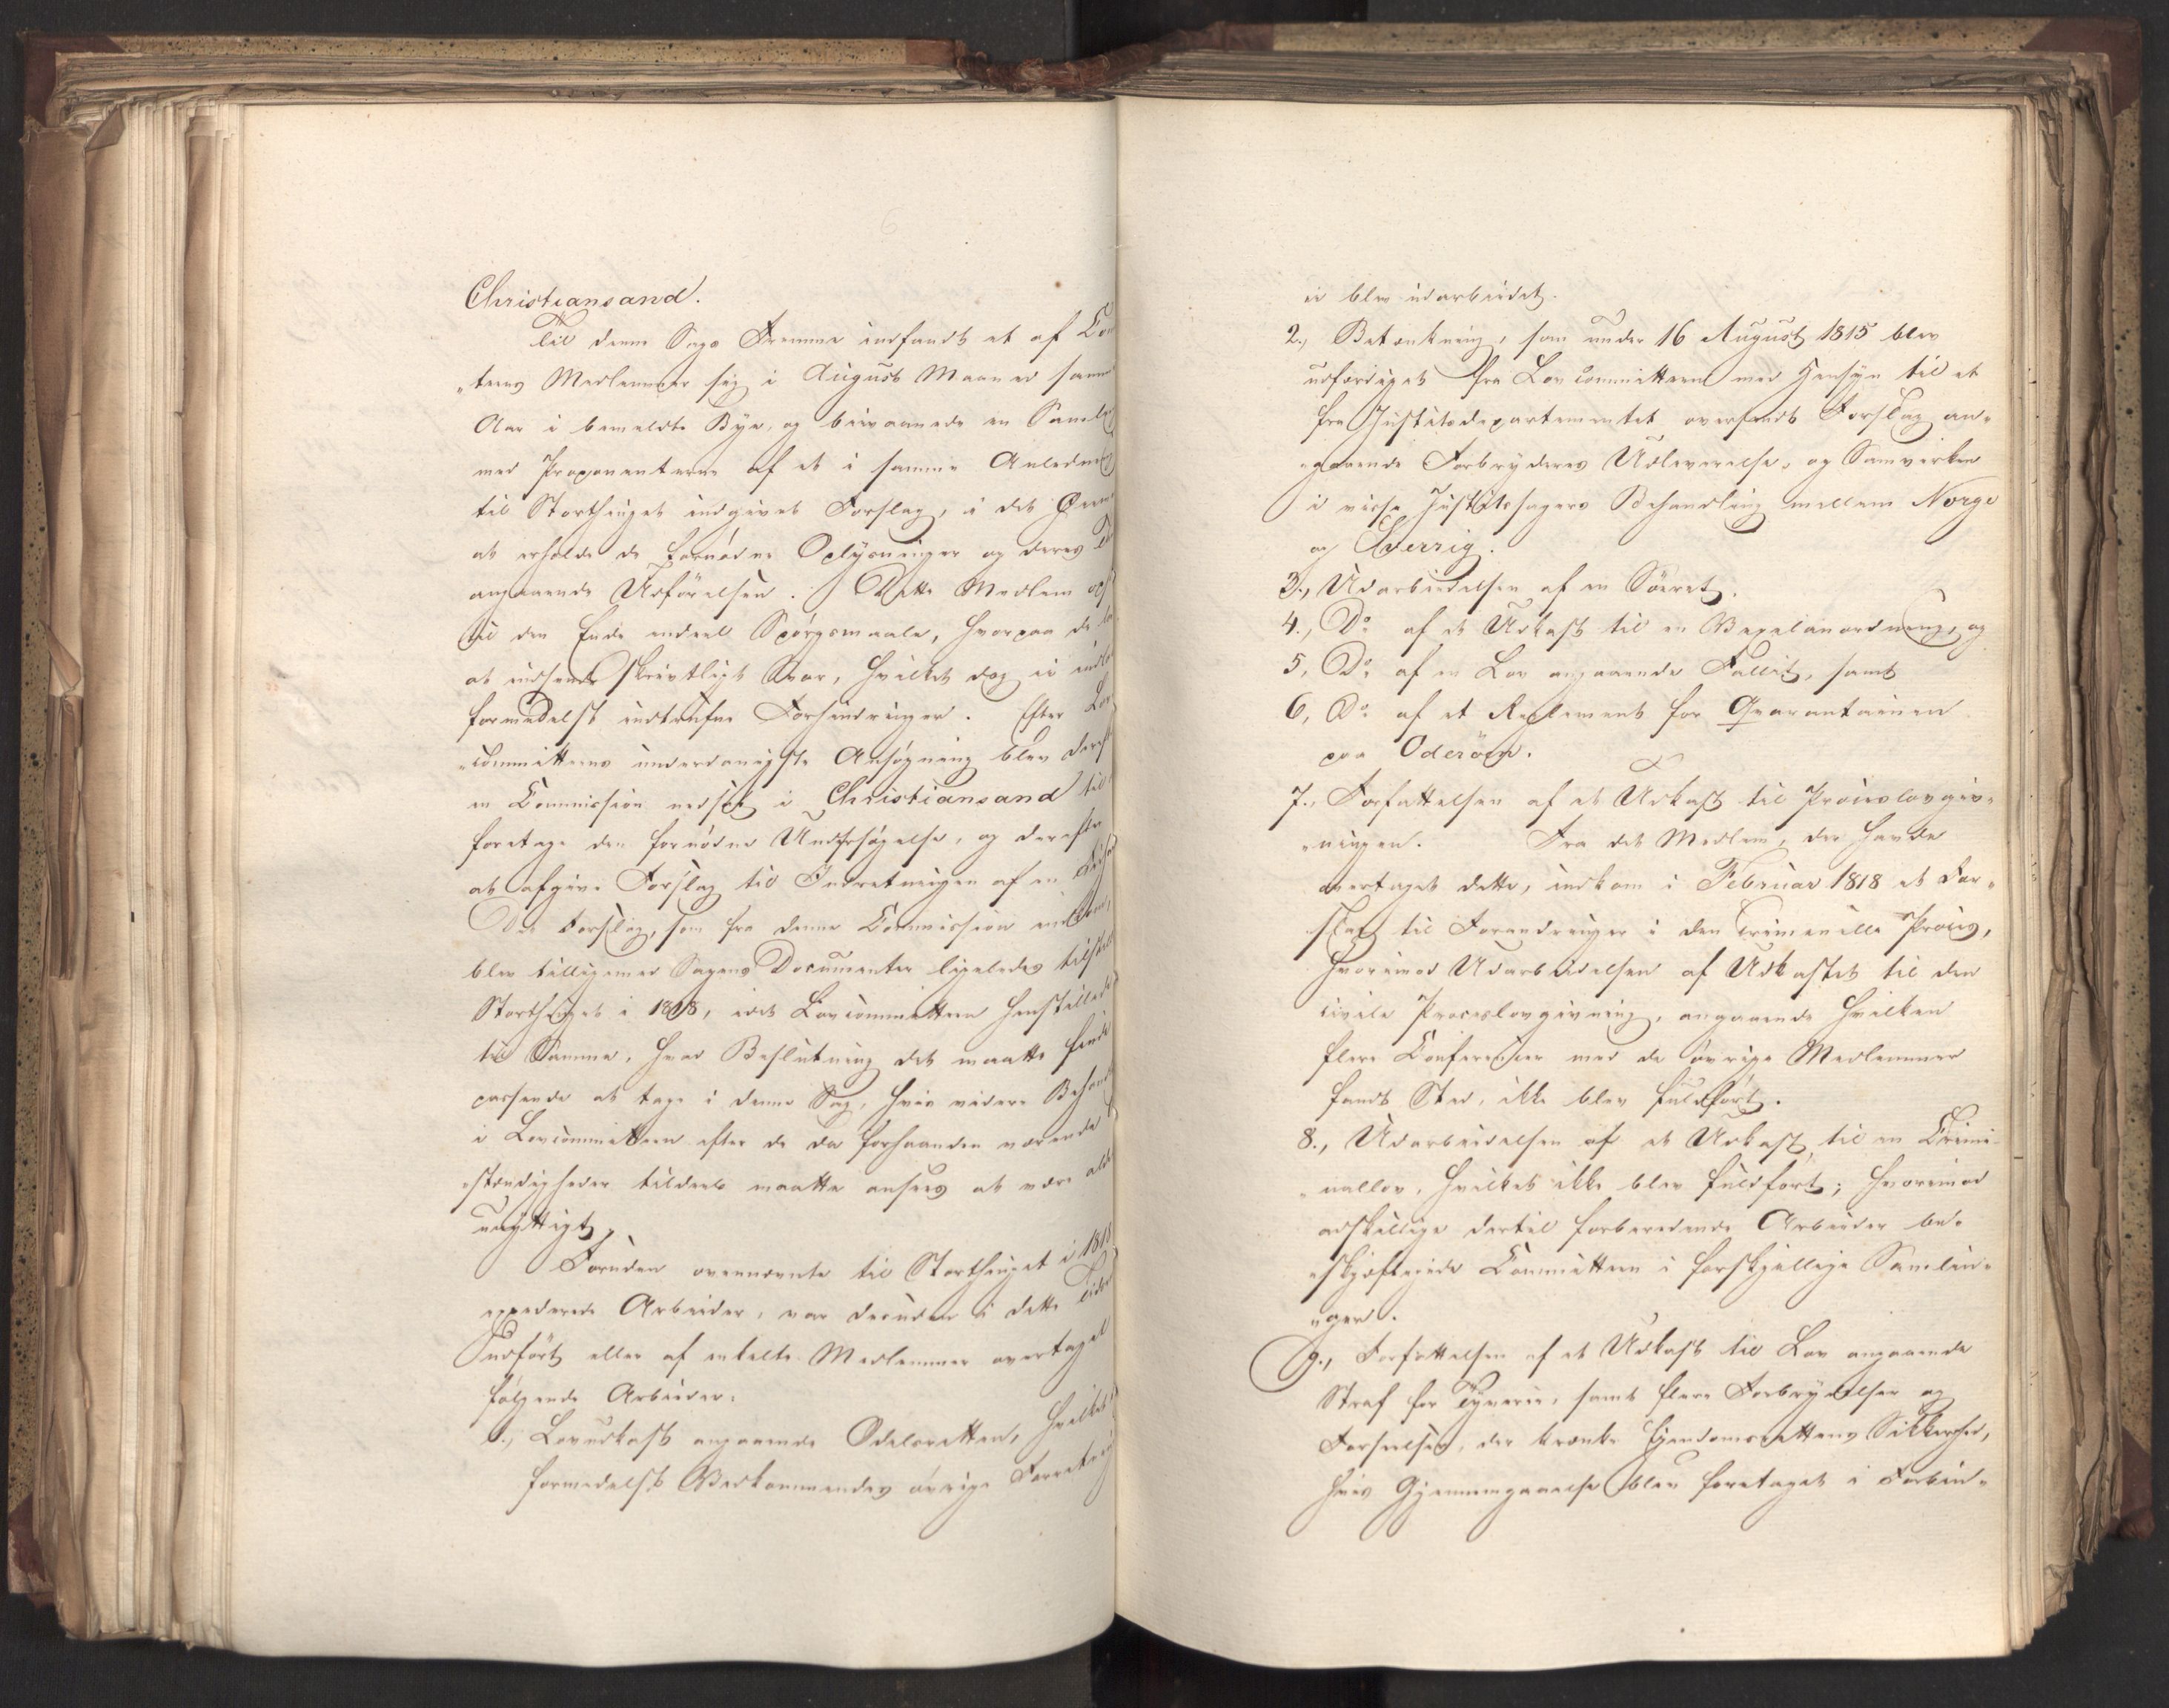 Christiansand.
Til denne Sags Fremme indfandt et af Com
„teens Medlemmer sig i August Maaned samme
Aar i bemeldte Bye, og bievaanede en Samling
med Proponenterne af et i samme Anledning
til Storthinget indgivet Forslag, i det Øiem
at erholde de fornødne Oplysninger og deres
angaaende Udførelsen. Dette Medlem
til den Ende endeel Spørgsmaale, hvorpaa de
at indsende skrivtligt Svar, hvilket dog ei
formedelst indtrufne Forhindringer. Efter Lov
„committeens underdanigste Ansøgning blev derefter
en Commission nedsat i Christiansand til
foretage den fornødne Undersøgelse, og derefter
at afgive Forslag til Indretningen af en
Det Forslag, som fra denne Commission indkom,
blev tilligemed Sagens Documenter ligeledes tilstillet
Storthinget i 1818, idet Lovcommitteen henstillede
til Samme, hvad Beslutning det maatte finde
passende at tage i denne Sag, hvis videre Behand
i Lovcommitteen efter de da forhaanden værende
„stændigheder tildeels maatte ansees at være
unyttigt.
Foruden ovennævnte til Storthinget i 1818
expederede Arbeider, var desuden i dette
udført eller af enkelte Medlemmer overtaget
følgende Arbeider:
1., Lovudkast angaaende Odelsretten, hvilket
formedelst Vedkommendes øvrige Forretning
ei blev udarbeidet.
2., Betænkning, som under 16 August 1815 blev
udfærdiget fra Lovcommitteen med Hensyn til et
fra Justitsdepartementet oversendt Forslag an„
„gaaende Forbryderes Udleverelse, og Samvirken
i visse Justitssagers Behandling mellem Norge
og Sverrig.
3., Udarbeidelsen af en Søeret.
4., Do af et Udkast til en Vexelanordning, og
5, Do af en Lov angaaende Fallit, samt
6, Do af et Reglement for Qvarantainen
paa Oderöen.
7., Forfattelsen af et Udkast til Proceslovgiv„
„ningen. Fra det Medlem, der havde
overtaget dette, indkom i Februar 1818 et For„
slag til Forandringer i den criminelle Proces,
hvorimod Udarbeidelsen af Udkastet til den
civile Proceslovgivning, angaaende hvilken
flere Conferencer med de øvrige Medlemmer
fandt Sted, ikke blev fuldført.
8., Udarbeidelsen af et Udkast til en Crimi
„nallov, hvilket ikke blev fuldført; hvorimod
adskillige dertil forberedende Arbeider be„
„skjæftigede Committeen i forskjellige Samlin„
„ger.
9., Forfattelsen af et Udkast til Lov angaaende
Straf for Tyverie, samt flere Forbrydelser og
Forseelser, der krænke Eiendomsrettens Sikkerhed,
hvis Gjennemgaaelse blev foretaget i Forbin„